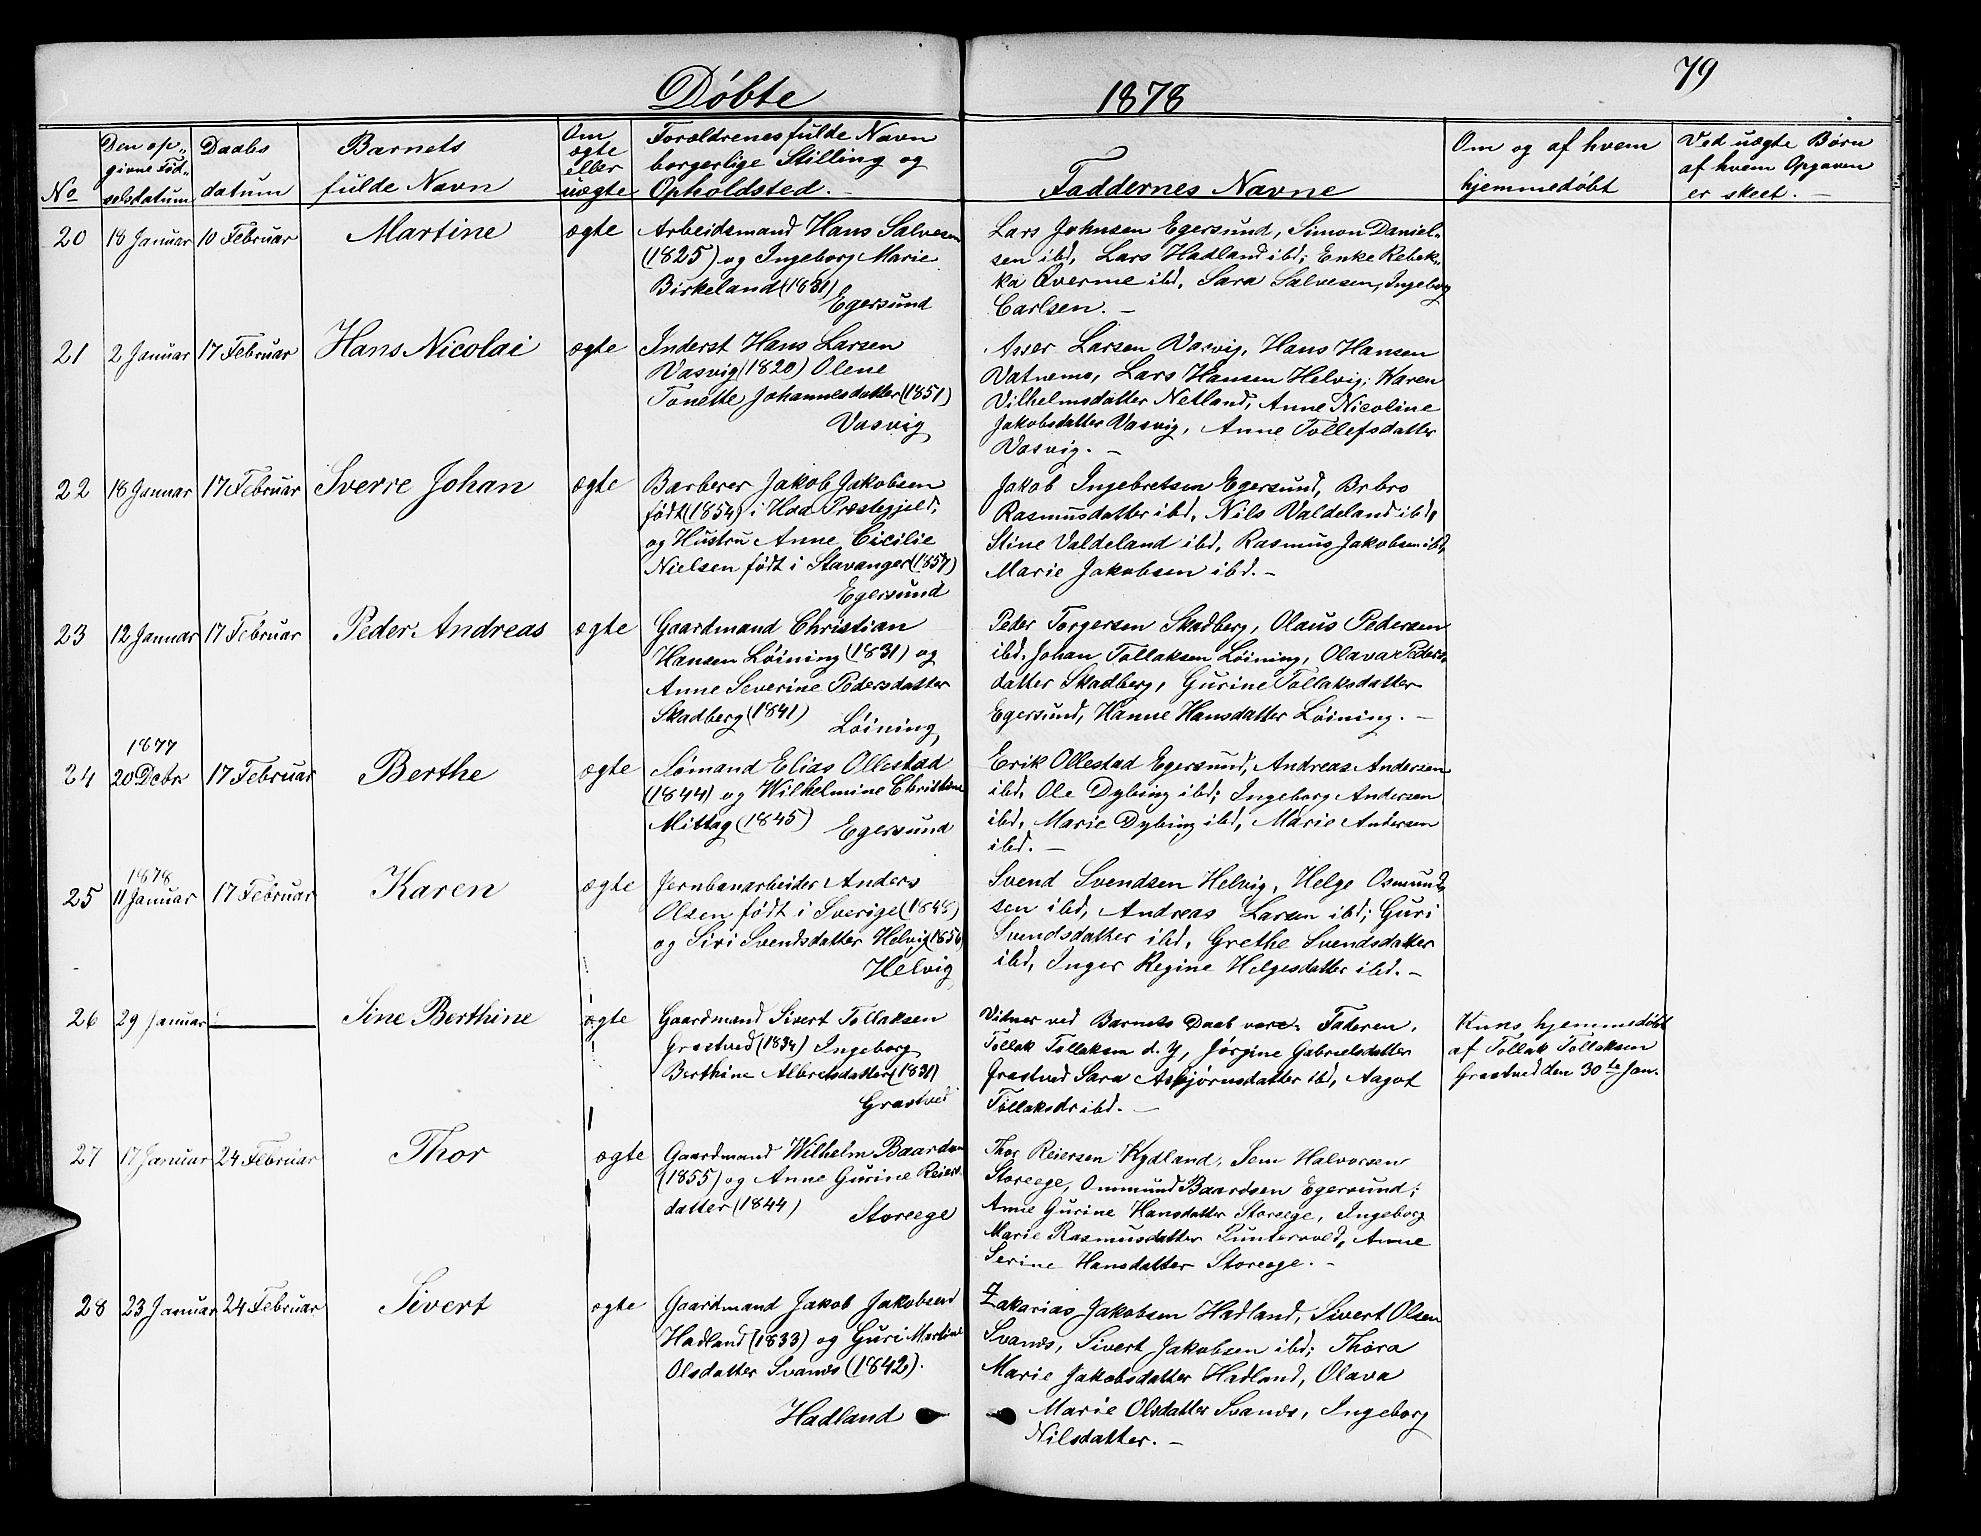 79
Døbte 1878
No
Den op-
givne Fød-
selsdatum
Daabs
datum
Barnets
fulde Navn
Om
ægte
eller
uægte
Forældrenes fulde Navn
borgerlige Stilling og
Opholdsted. -
Faddernes Navne
Om og af hvem
hjemmedøbt
Ved uægte Børn
af hvem Opgaven
er skeet. -
20 18 Januar 10 Februar Martine ægte
Arbeidsmand Hans Salvesen
(1825) og Ingeborg Marie
Birkeland (1831)
Egersund
Lars Johnsen Egersund, Simon Daniel-
sen ibd, Lars Hadland ibd; Enke Rebek-
ka Qverme ibd, Sara Salvesen, Ingeborg
Carlsen. -
21 2 Januar 17 Februar Hans Nicolai ægte
Inderst Hans Larsen
Vasvig (1820) Olene
Tonette Johannesdatter (1851)
Vasvig
Asser Larsen Vasvig, Hans Hansen
Vatnemo, Lars Hansen Helvig; Karen
Vilhelmsdatter Netland, Anne Nicoline
Jakobsdatter Vasvig, Anne Tollefsdatter
Vasvig. -
22 18 Januar 17 Februar Sverre Johan ægte
Barberer Jakob Jakobsen
født (1854) i Haa Præstegjeld;
og Hustru Anne Cicilie
Nielsen født i Stavanger (1857)
Egersund
Jakob Ingebretsen Egersund, Brbro
Rasmusdatter ibd, Nils Valdeland ibd,
Stine Valdeland ibd, Rasmus Jakobsen ibd,
Marie Jakobsen ibd. -
23 12 Januar 17 Februar Peder Andreas ægte
Gaardmand Christian
Hansen Løining (1831) og
Anne Severine Pedersdatter
Skadberg (1841)
Løining
Peder Torgersen Skadberg, Olaus Pedersen
ibd. Johan Tollaksen Løining, Olava Peders-
datter Skadberg, Gurine Tollaksdatter
Egersund, Hanne Hansdatter Løining. -
1877
24 20 Decbr 17 Februar Berthe ægte
Sømand Elias Ollestad
(1844) og Wilhelmine Christine
Mittag (1845)
Egersund
Erik Ollestad Egersund, Andreas Andersen
ibd, Ole Dybing ibd; Ingeborg Andersen
ibd, Marie Dybing ibd, Marie Andersen
ibd. -
1878
25 11 Januar 17 Februar Karen ægte
Jernbanarbeider Anders
Olsen født i Sverige (1848)
og Siri Svendsdatter Helvig (1856)
Helvig
Svend Svendsen Helvig, Helge Osmund-
sen ibd, Andreas Larsen ibd; Guri
Svendsdatter ibd, Grethe Svendsdatter
ibd, Inger Regine Helgesdatter ibd. -
26 29 Januar Sine Berthine ægte
Gaardmand Sivert Tollaksen
Grastved (1834) Ingeborg
Berthine Albretsdatter (1831)
Grastved
Vidner ved Barnets Daab vare: Faderen,
Tollak Tollaksen d. y, Jørgine Gabrielsdatter
Grastved Sara Asbjørnsdatter ibd, Aagot
Tollaksdr ibd. -
Kuns hjemmedøbt
af Tollak Tollaksen
Grastved den 30te Jan.
27 17 Januar 24 Februar Thor ægte
Gaardmand Wilhelm Baardsen
(1855) og Anne Gurine Reiers-
datter (1844)
Storeege
Thor Reiersen Kydland, Sem Halvorsen
Storeege, Ommund Baardsen Egersund;
Anne Gurine Hansdatter Storeege, Ingeborg
Marie Rasmusdatter Puntervold, Anne
Serine Hansdatter Storeege. -
28 23 Januar 24 Februar Sivert ægte
Gaardmand Jakob Jakobsen
Hadland (1833) og Guri Martine
Olsdatter Svanes (1842).
Hadland
Zakarias Jakobsen Hadland, Sivert Olsen
Svanes, Sivert Jakobsen ibd; Thora
Marie Jakobsdatter Hadland, Olava
Marie Olsdatter Svanes, Ingeborg
Nilsdatter. -